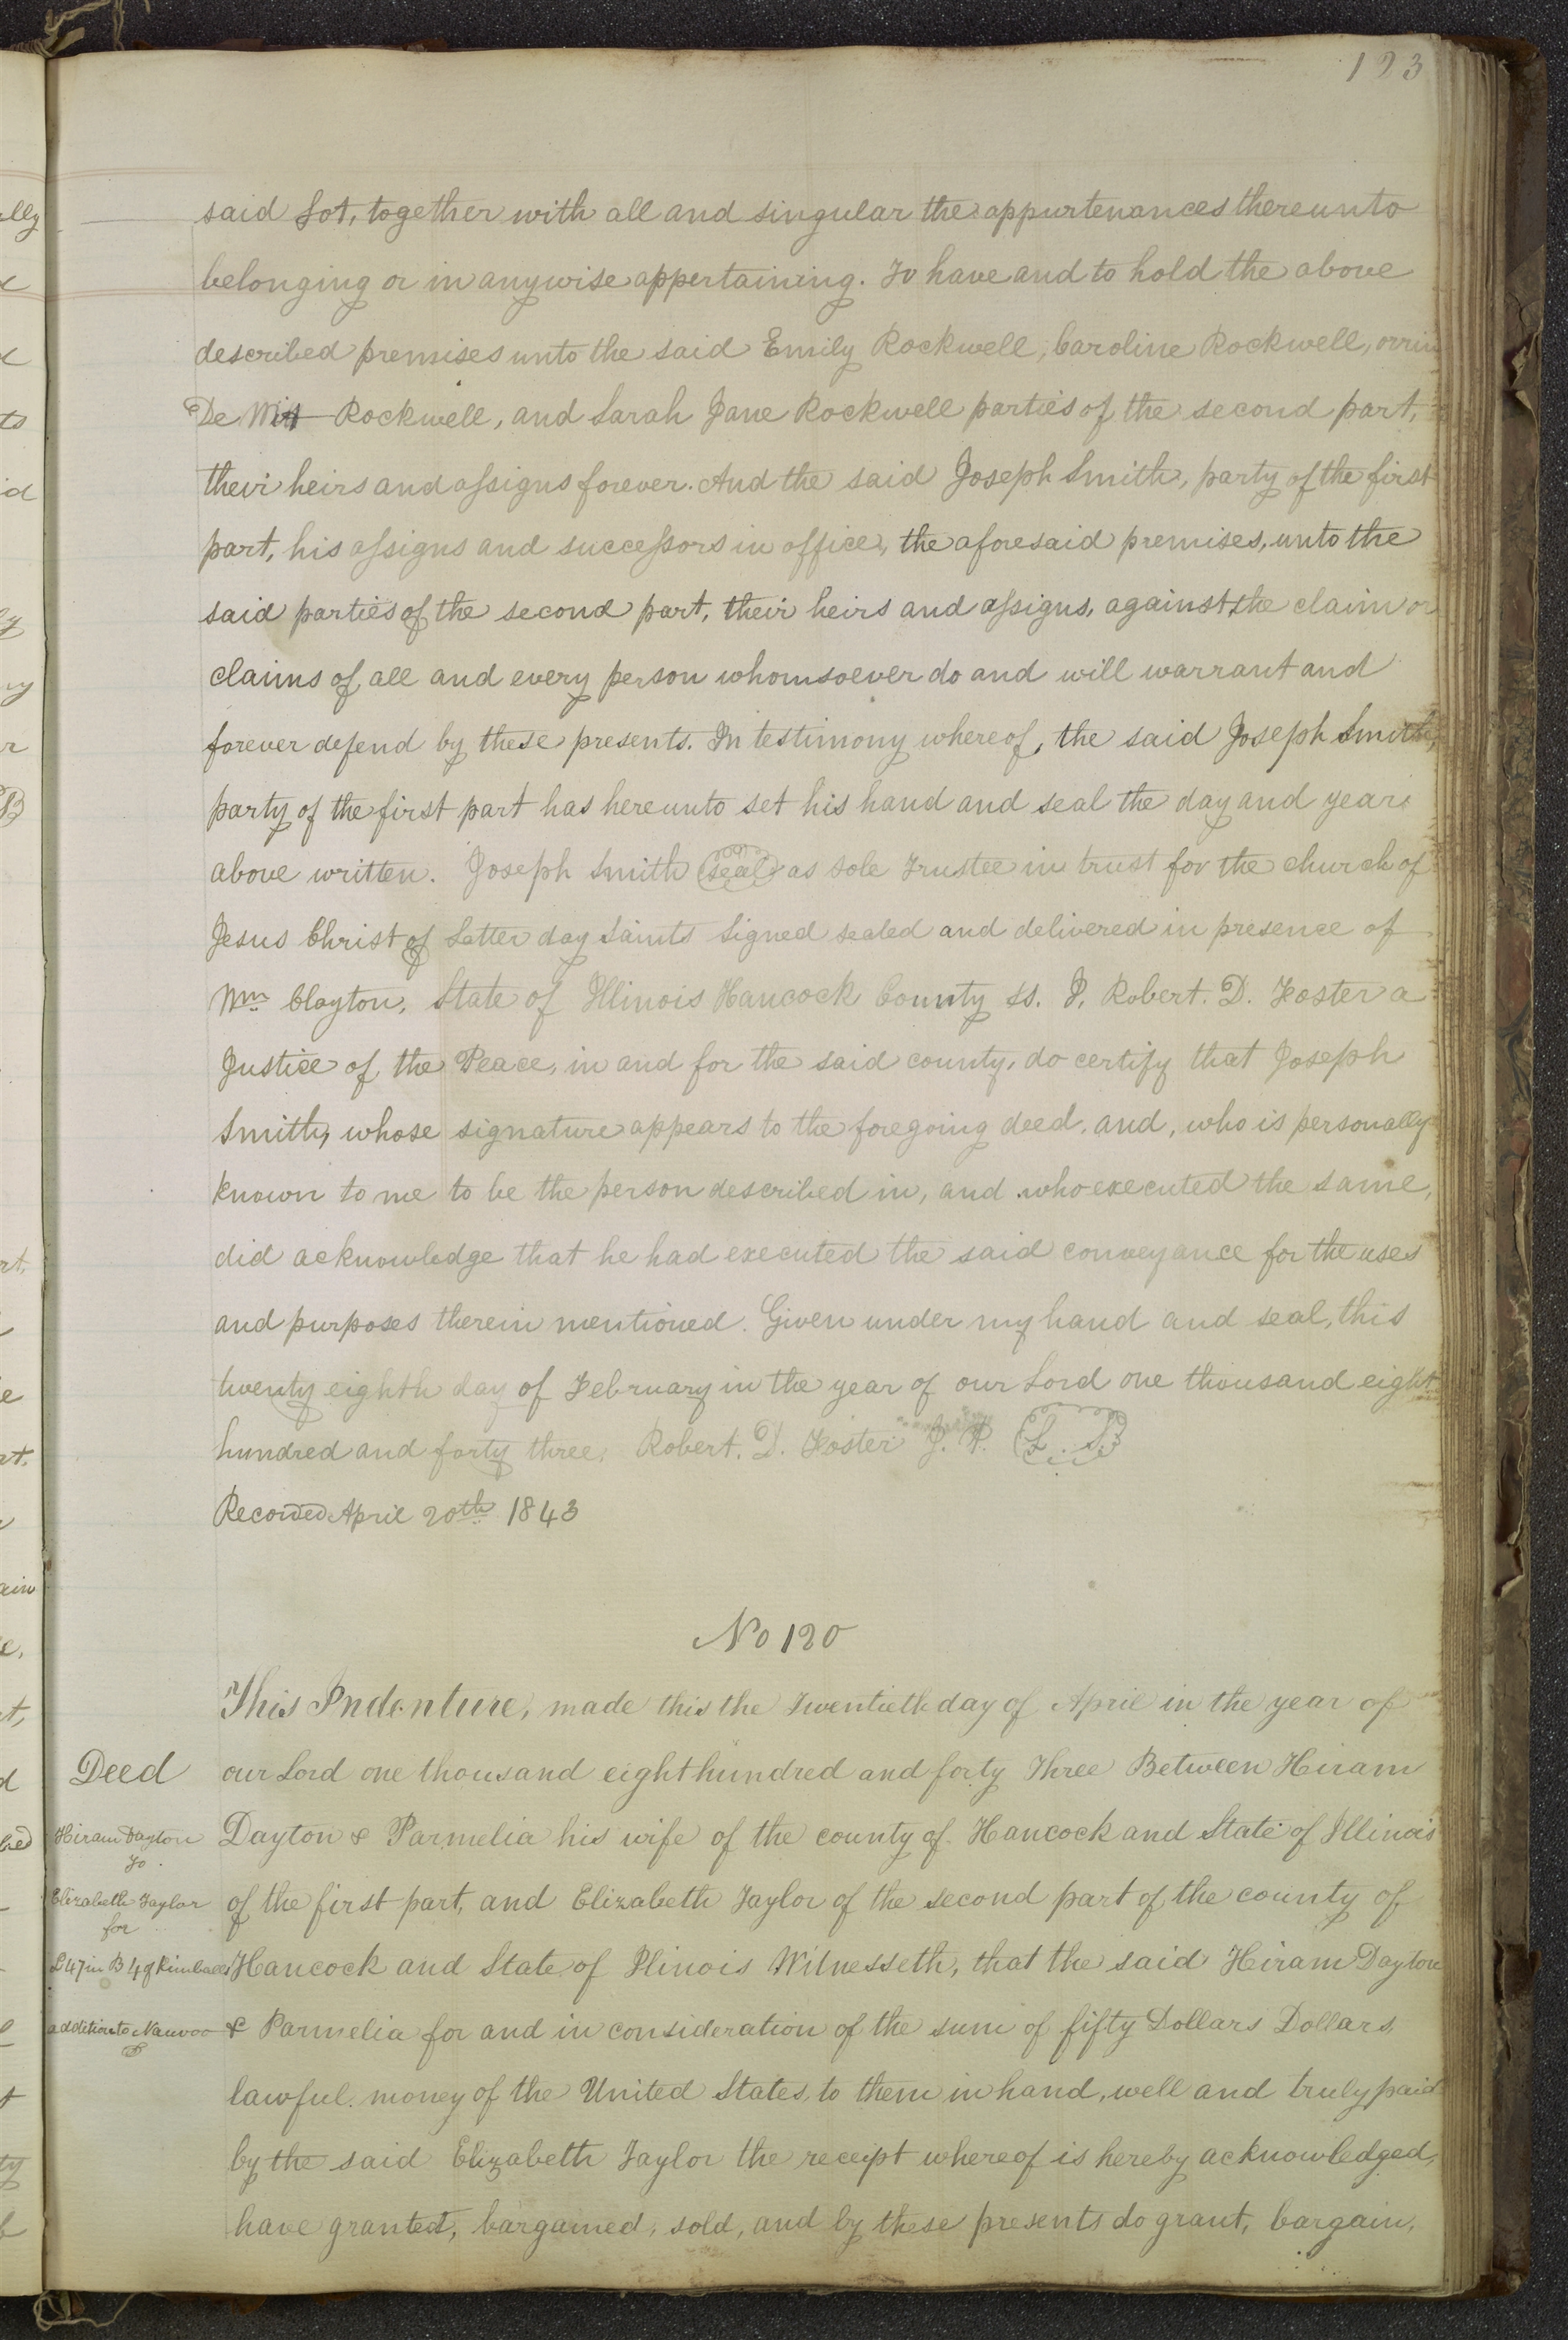 193
said Lot, together with all and singular the appurtenances thereunto
belonging or in anywise appertaining. To have and to hold the above
described premises unto the said Emily Rockwell, Caroline Rockwell, orrin
De Witt Rockwell, and Sarah Jane Rockwell parties of the second part,
their heirs and assigns forever. And the said Joseph Smith, party of the first
part, his assigns and successors in office, the aforesaid premises, unto the
said parties of the second part, their heirs and assigns, against the claim or
claims of all and every person whomsoever do and will warrant and
forever defend by these presents. In testimony whereof, the said Joseph Smith,
party of the first part has hereunto set his hand and seal the day and year
above written. Joseph Smith (seal) as sole Trustee in trust for the church of
Jesus Christ of Latter day Saints Signed sealed and delivered in presence of
Wm Clayton, State of Illinois Hancock County ss. I, Robert. D. Foster a
Justice of the Peace, in and for the said county, do certify that Joseph
Smith, whose signature appears to the foregoing deed, and, who is personally
known to me to be the person described in, and who executed the same,
did acknowledge that he had executed the said conveyance for the uses
and purposes therein mentioned. Given under my hand and seal, this
twenty eighth day of February in the year of our Lord one thousand eight
hundred and forty three, Robert. D. Foster J. P. (L. S.)
Recorded April 20th 1843
No 120
This Indenture, made this the Twentieth day of April in the year of
Deed our Lord one thousand eight hundred and forty Three Between Hiram
Hiram Dayton Dayton & Parmelia his wife of the county of Hancock and State of Illinois
To
Elizabeth Taylor of the first part, and Elizabeth Taylor of the second part of the county of
for
L 47 in B 4 of Kimballs Hancock and State of Ilinois Witnesseth, that the said Hiram Dayton
addition to Nauvoo & Parmelia for and in consideration of the sum of fifty Dollars Dollars,
lawful money of the United States, to them in hand, well and truly paid
by the said Elizabeth Taylor the receipt whereof is hereby acknowledged,
have granted, bargained, sold, and by these presents do grant, bargain,